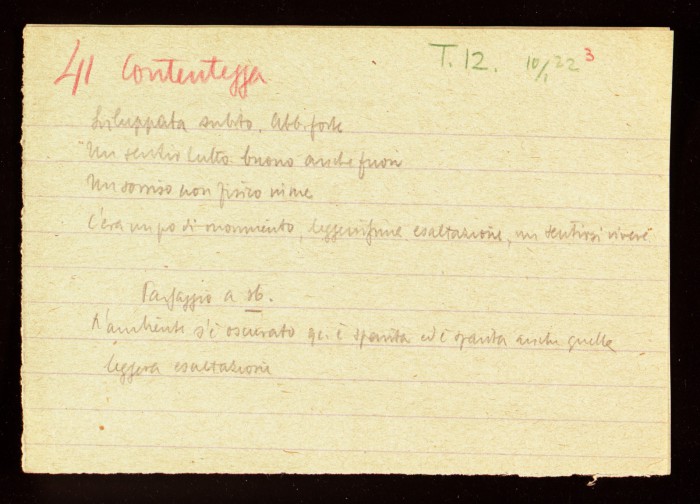 41 Contentezza T. 12. 10/1 22 3
Sviluppata subito. Abb. forte
Un sentir tutto buono anche fuori
Un sorriso non fisico
C'era un po di movimento, leggerissime esaltazione, un sentirsi vivere
Passaggio a sb.
L'ambiente s'è oscurato qc. è sparita ed è sparita anche quella
leggera esaltazione